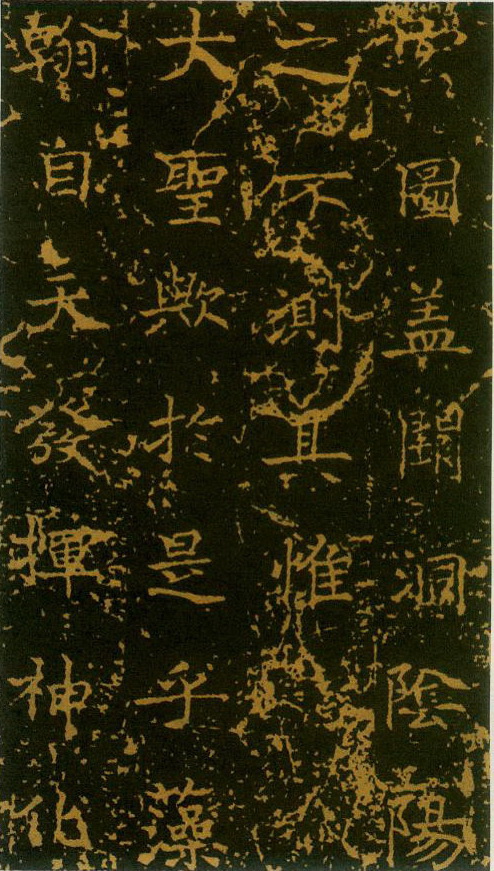 圖蓋闡洞陰陽
之不測其惟
大聖歟於是乎藻
翰自天發揮神化